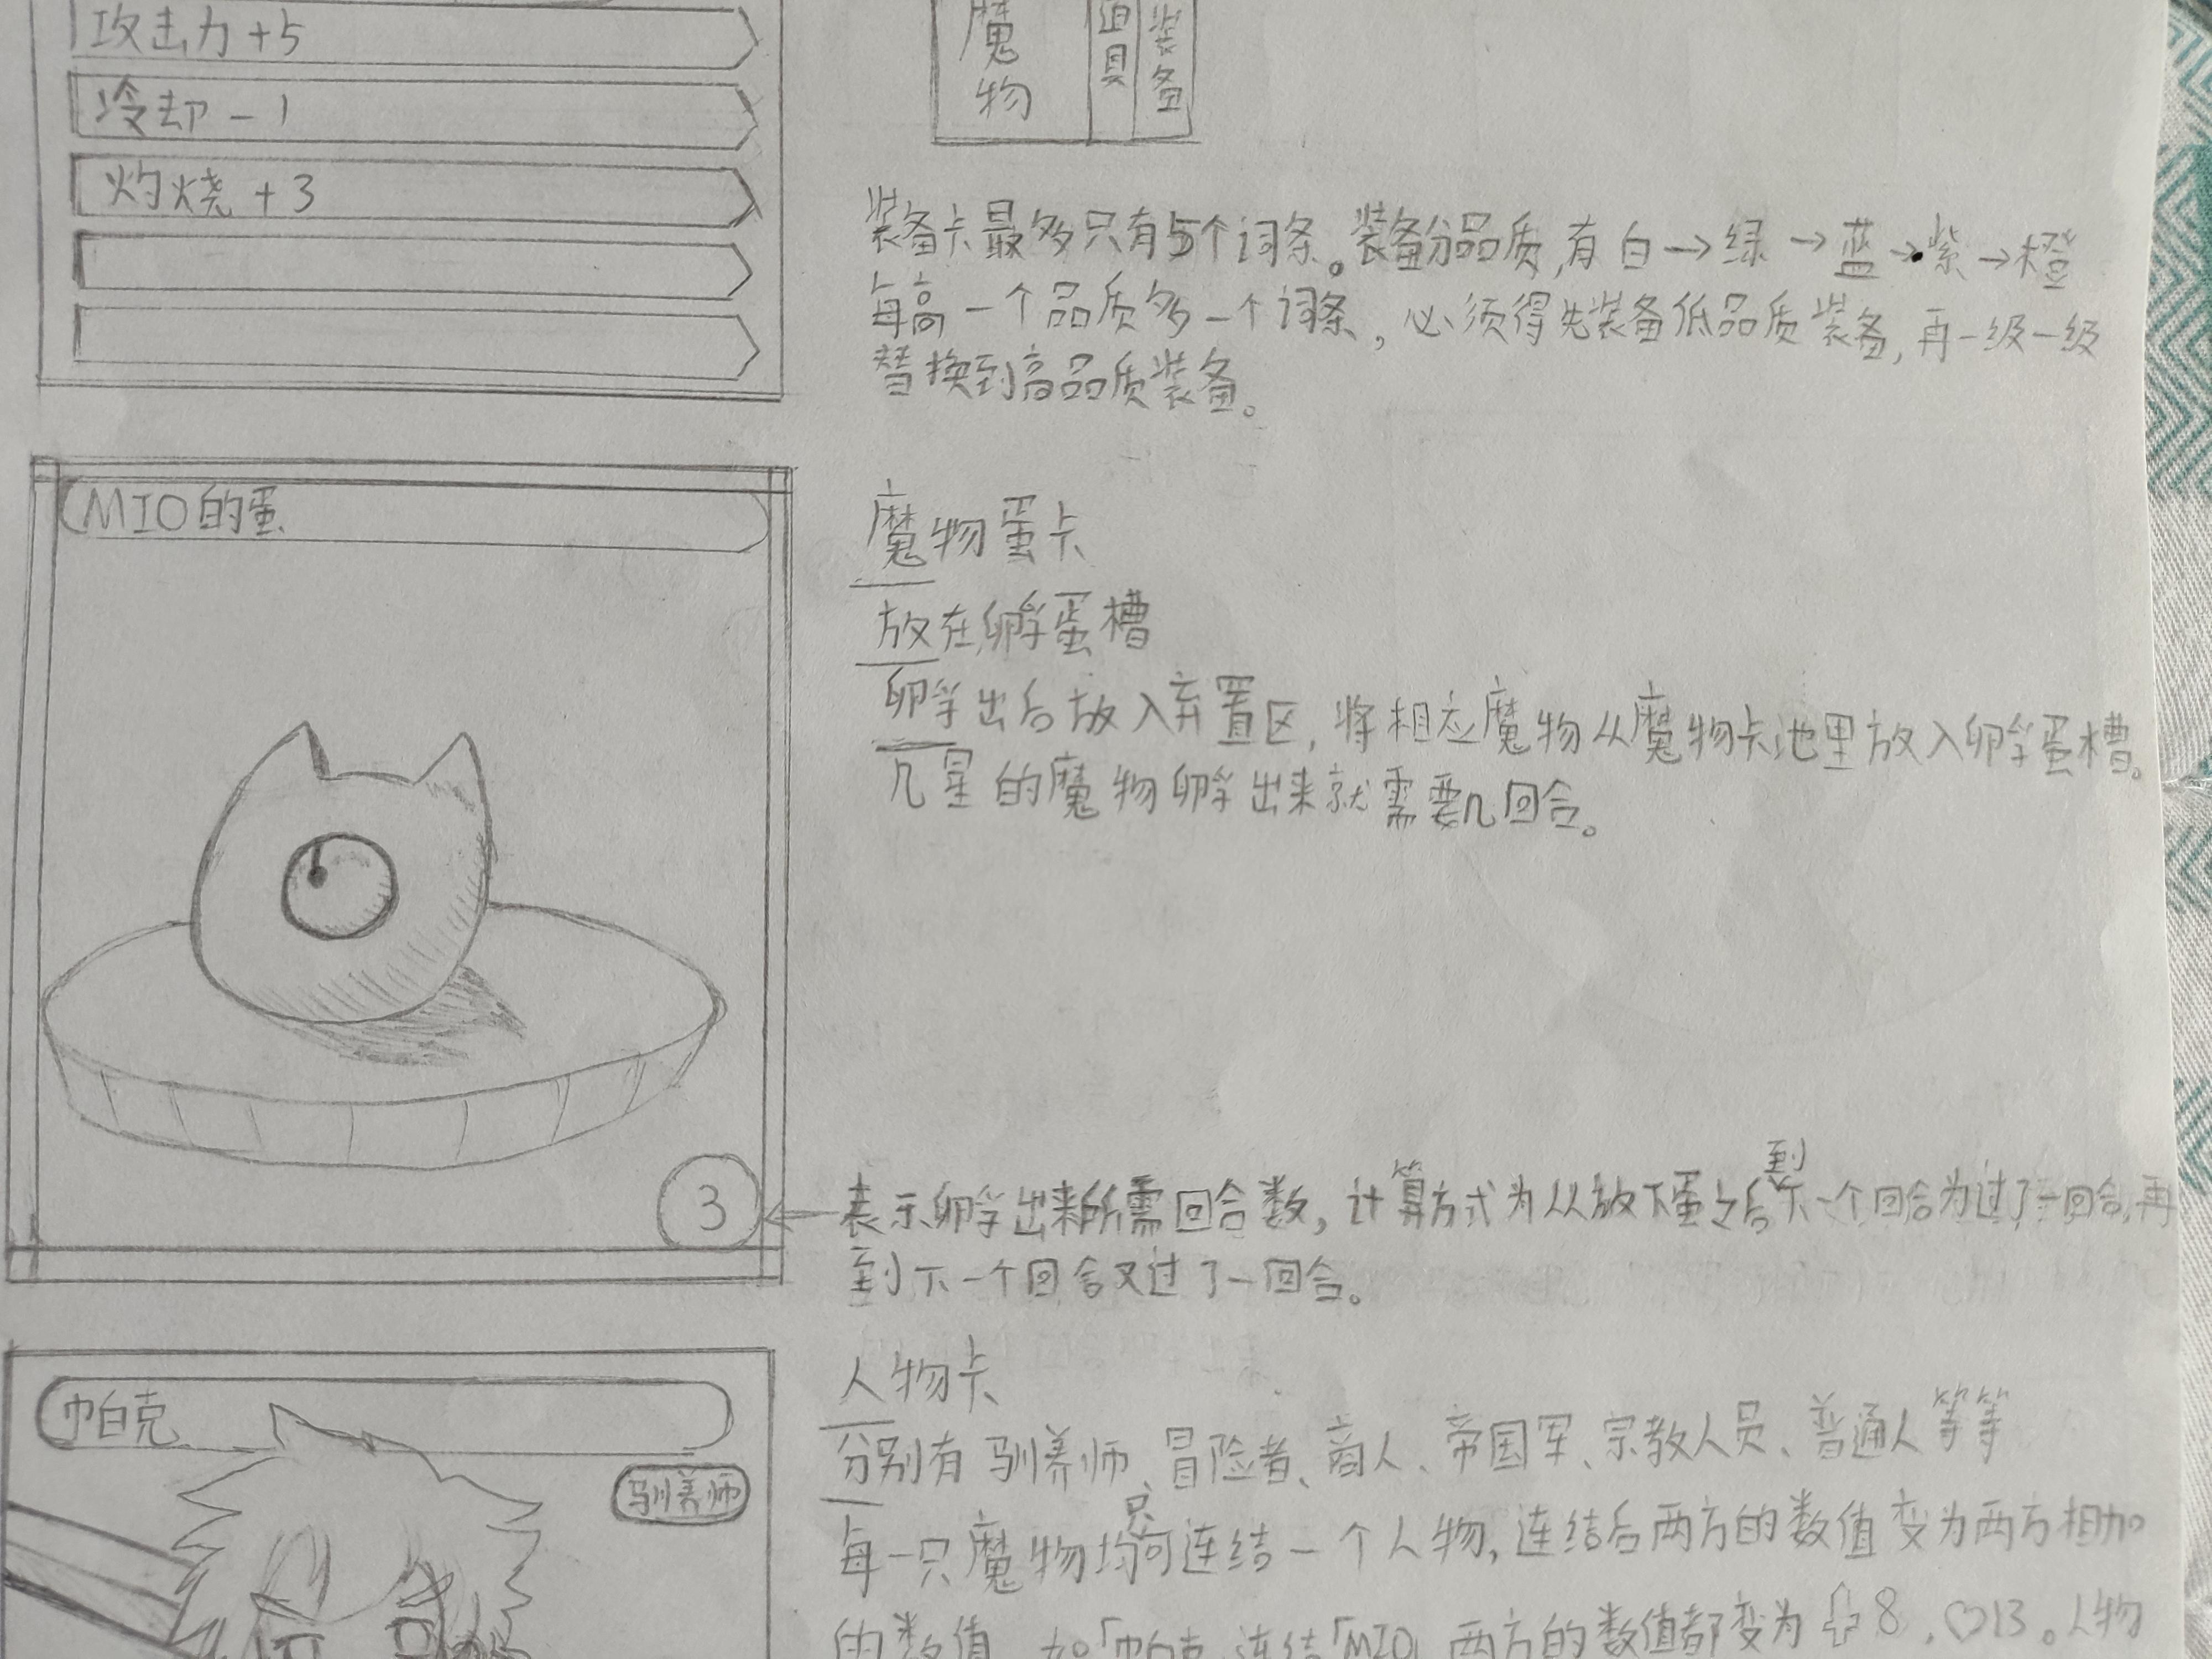 攻击力+5
冷却-1
灼烧+3
魔物
道具
装备
装备卡最多只有5个词条。装备分品质,有白→绿→蓝→紫→橙
每高一个品质多一个词条,必须得先装备低品质装备,再一级一级
替换到高品质装备。
MIO的蛋
魔物蛋卡
放在孵蛋槽
孵出后放入弃置区,将相应魔物从魔物卡池里放入孵蛋槽。
几星的魔物孵出来就需要几回合。
3
表示孵出来所需回合数,计算方式为从放下蛋之后到下一个回合为过了一回合,再
到下一个回合又过了一回合。
帕克
驯养师
人物卡
分别有驯养师、冒险者、商人、帝国军、宗教人员、普通人等等
每一只魔物均只可连结一个人物,连结后两方的数值变为两方相加
的数值 如「帕克」连结「MIO」两方的数值都变为 8,♡13。人物